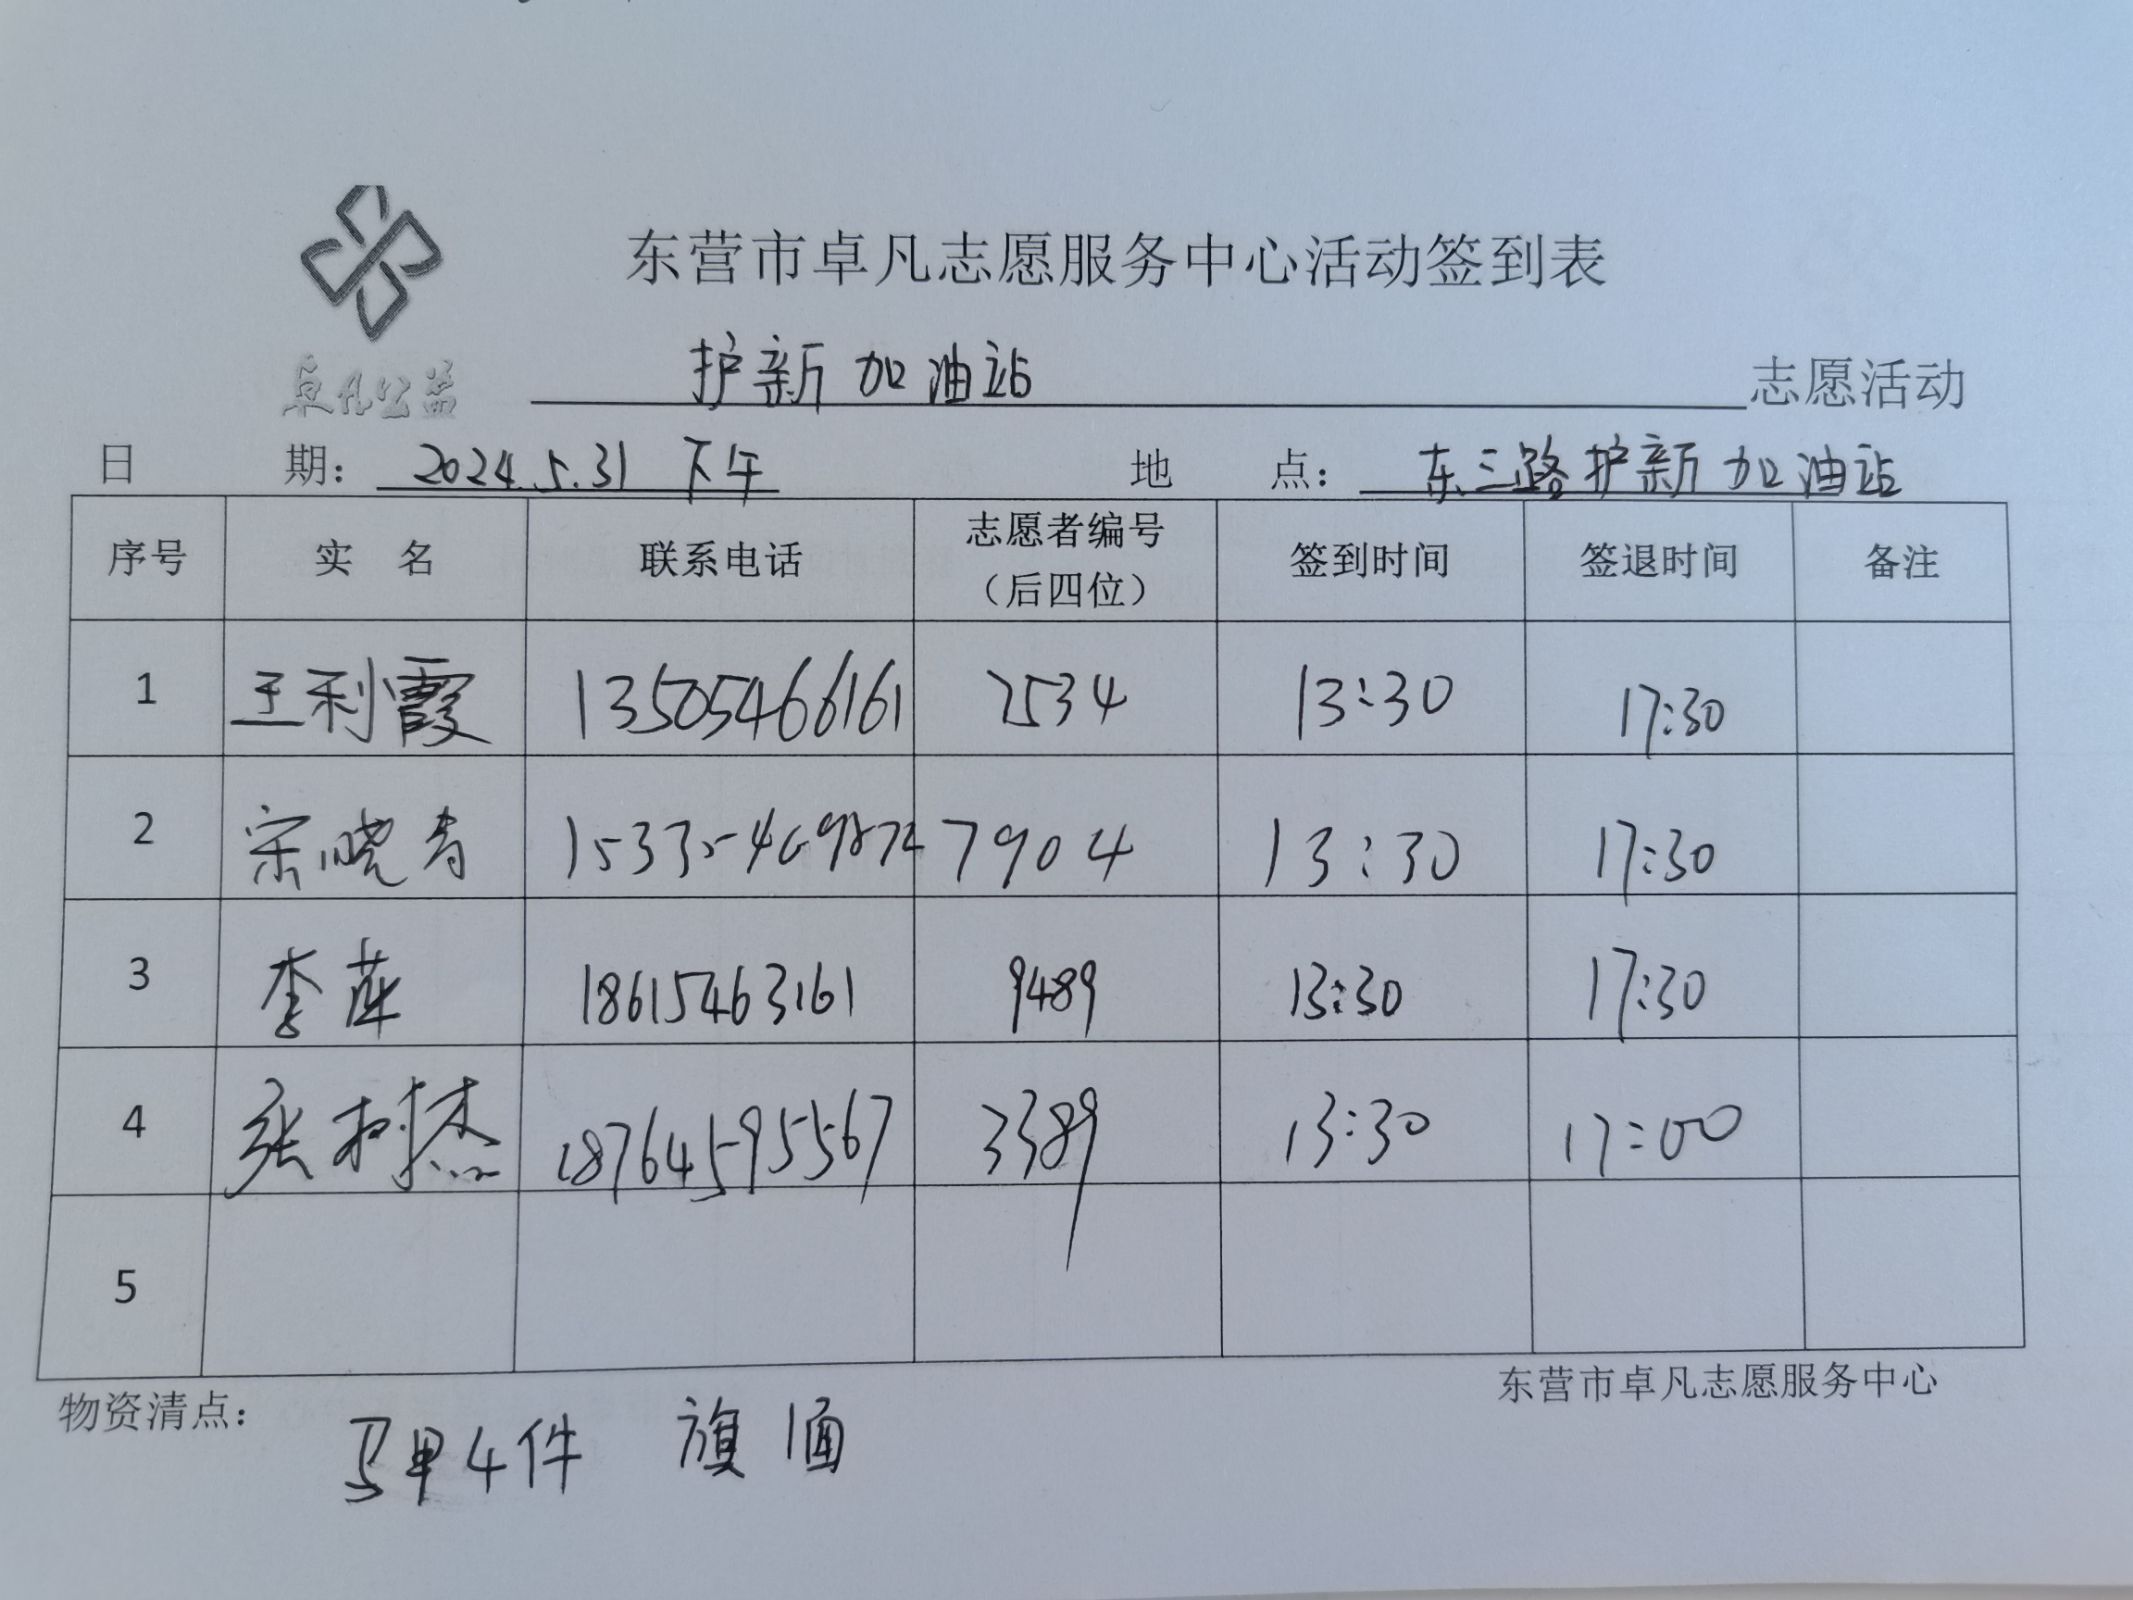 东营市卓凡志愿服务中心活动签到表
卓凡公益
护新加油站 志愿活动
日 期: 2024.5.31 下午 地 点: 东三路护新加油站
序号 实 名 联系电话 志愿者编号（后四位） 签到时间 签退时间 备注
1 王利霞 13505466161 2534 13:30 17:30
2 宋晓青 15335469872 7904 13:30 17:30
3 李萍 18615463161 9489 13:30 17:30
4 张树杰 18764595567 3389 13:30 17:00
5
东营市卓凡志愿服务中心
物资清点: 马甲4件 旗1面